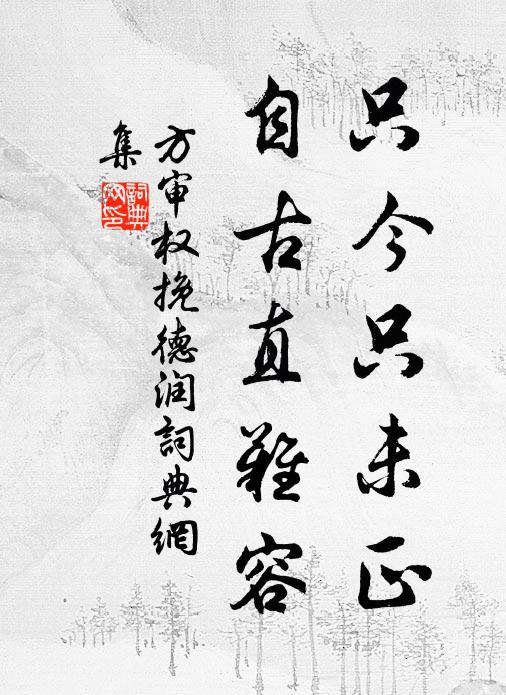 只今只未正
自古直難容
方审权挽德润詞典網
集
詞典
网印